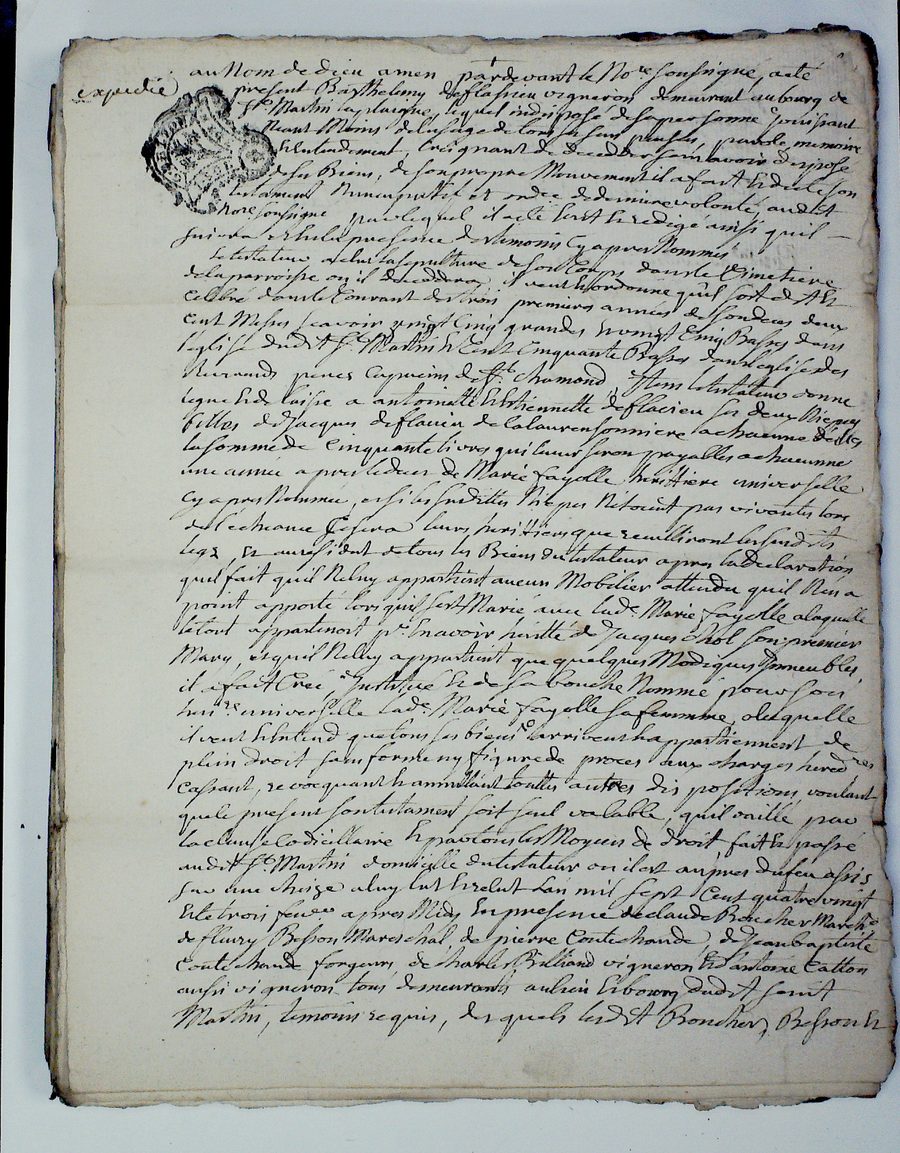 expedié
au Nom de dieu amen pardevant le No.re sousigné, a eté
present Barthelemy deflassieu vigneron demeurant au bourg de
St Martin la plaigne, lequel indisposé de sa personne jouissant
neant Moins de l'usage de tous ses sens pensée, parole, memoire
Et Entendement, Craignant de decedder sans avoir disposé
de ses Biens, de son propre Mouvement il a fait Et dicté son
testament Nuncupattif et ordre de derniere volonté, audit
No.re sousigné par lequel il a eté Ecrit et redigé ainsi quil
suivra Et en la presence des temoins Cy apres Nommés
le testateur a elu la sepulture de son Corps dans le Cimetiere
de la parroisse ou il deceddera, il veut Et ordonne qu'il soit dit Et
Celebré dans le Courant des trois premieres années de son deces deux
cent Messes sçavoir vingt Cinq grandes Et vingt Cinq Basses dans
l'eglise dudit St Martin Et Cent Cinquante Basses dans leglise des
Reverands peres Capucins de St chamond, Item le testateur donne
legue Et delaisse a antoinette Et Estiennette deflacieu ses deux Nieces
filles de Jacques deflacieu de la laurensonniere a chacunne d'elles
la somme de Cinquante livres qui leur seron payalles a chacunne
une année apres le deces de Marie fayolle heritiere universelle
Cy apres Nommée, et si les sudittes Nieces N'etoient pas vivantes lors
de l'echeance Ce sera leurs heritiers que receuilliront les susdits
legs, Et au residut de tous les Biens du testateur apres la declaration
quil fait quil Ne luy appartient aucun Mobilier attendu quil N'en a
point apporté lors quil s'est Marié avec lad.e Marie fayolle a laquelle
le tout appartenoit p.r En avoir herité de Jacques chol son premier
Mary, et quil Ne luy appartient que quelques Modiques Immeubles,
il a fait Creé, Institué Et de sa bouche Nommé pour son
heri.re universelle lad.e Marie fayolle sa femme, a laquelle
il veut Et Entend que tous ses biens arrivent Et appartiennent de
plein droit sans forme ny figure de proces aux charges hered.res
Cassant, revocquant Et annullant touttes autres dispositions, voulant
que le present son testament soit seul valable, qu'il vaille par
la clause Codicillaire Et par tous les Moyens de droit, fait Et passé
audit St Martin domicille du testateur ou il est aupres du feu assis
sur une chaize a luy lut Et relut L'an mil sept Cent quatre vingt
Et le trois fevrier apres Midy En presence de claude Boucher March.d
de fleury Besson Mareschal, de pierre Coutechaude, de Jean baptiste
Coutechaude forgeurs, de charles Billiand vigneron Et d'antoine Catton
aussi vigneron tous demeurants au lieu Et bourg dudit saint
Martin, temoins requis, desquels lesdit Boucher, Besson Et